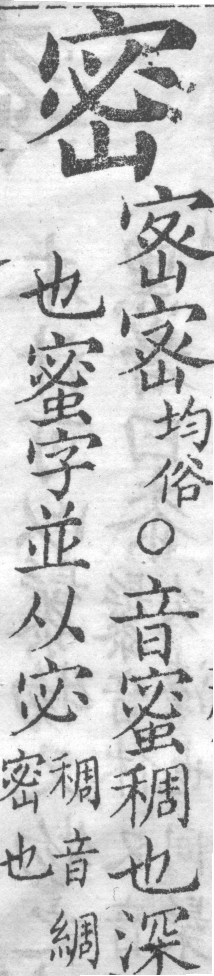 密
𡪀𡧼均俗〇音蜜稠也深
也蜜字並从宓稠音綢
密也